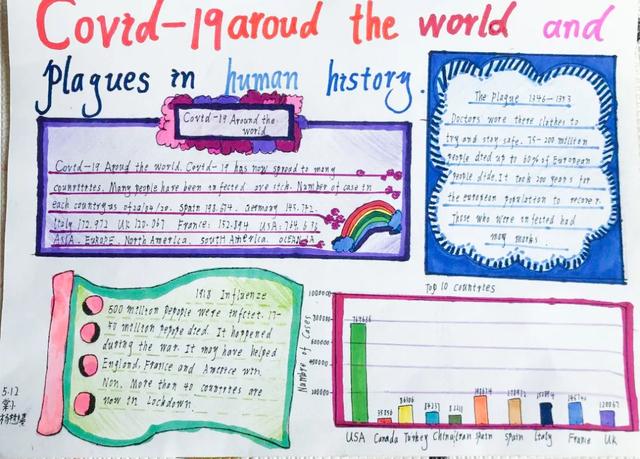 Covid-19 aroud the world and
plagues in human history.
Covid-19 Around the
world
Covid-19 Aroud the world. Covid-19 has now spread to many
Many people have been infected
each country as of 20/04/20. Spain 198.674. Germany 145.742.
Italy 178.972 UK 120.067 France: 152.894 USA:
ASIA. EUROPE. North America. south America. OCEANIA
The Plague 1346-1353
Doctors wore these clothes to
try and stay safe. 75-200 million
people died up to 60% of European
people. It took 200 years for
the european population to recover.
Those who were infected had
many marks.
1918 Influenze
500 million people were infctet. 17-
50 million people died. It happened
during the war. It may have helped
England, France and America win.
Now. More than 40 countries are
now in Lockdown.
Top 10 countries
Number of Cases
USA Canada Turkey China Iran Spain Spain Italy France UK
5.12